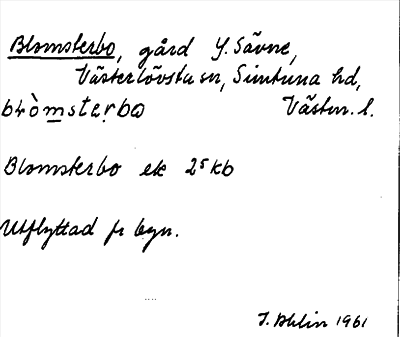 Blomsterbo, gård Y. Sävne,
Västerlövsta sn, Simtuna hd,
blòmsterbo Västm. l.
Blomsterbo ek 25 kb
Utflyttad fr byn.
I. Ahlin 1961